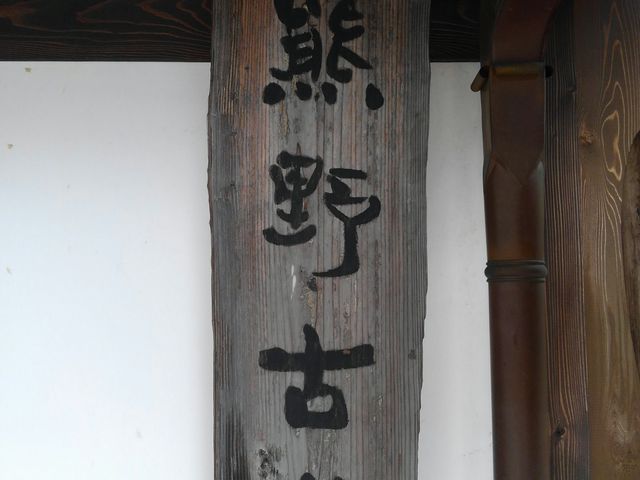 熊野古